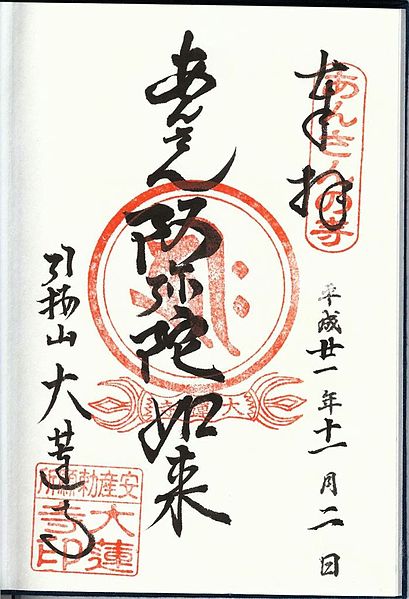 奉拝
あんさんの寺
平成廿一年十一月二日
あんさん
阿弥陀如来
大蓮寺
引接山
大蓮寺
安産勅願所
大蓮寺印